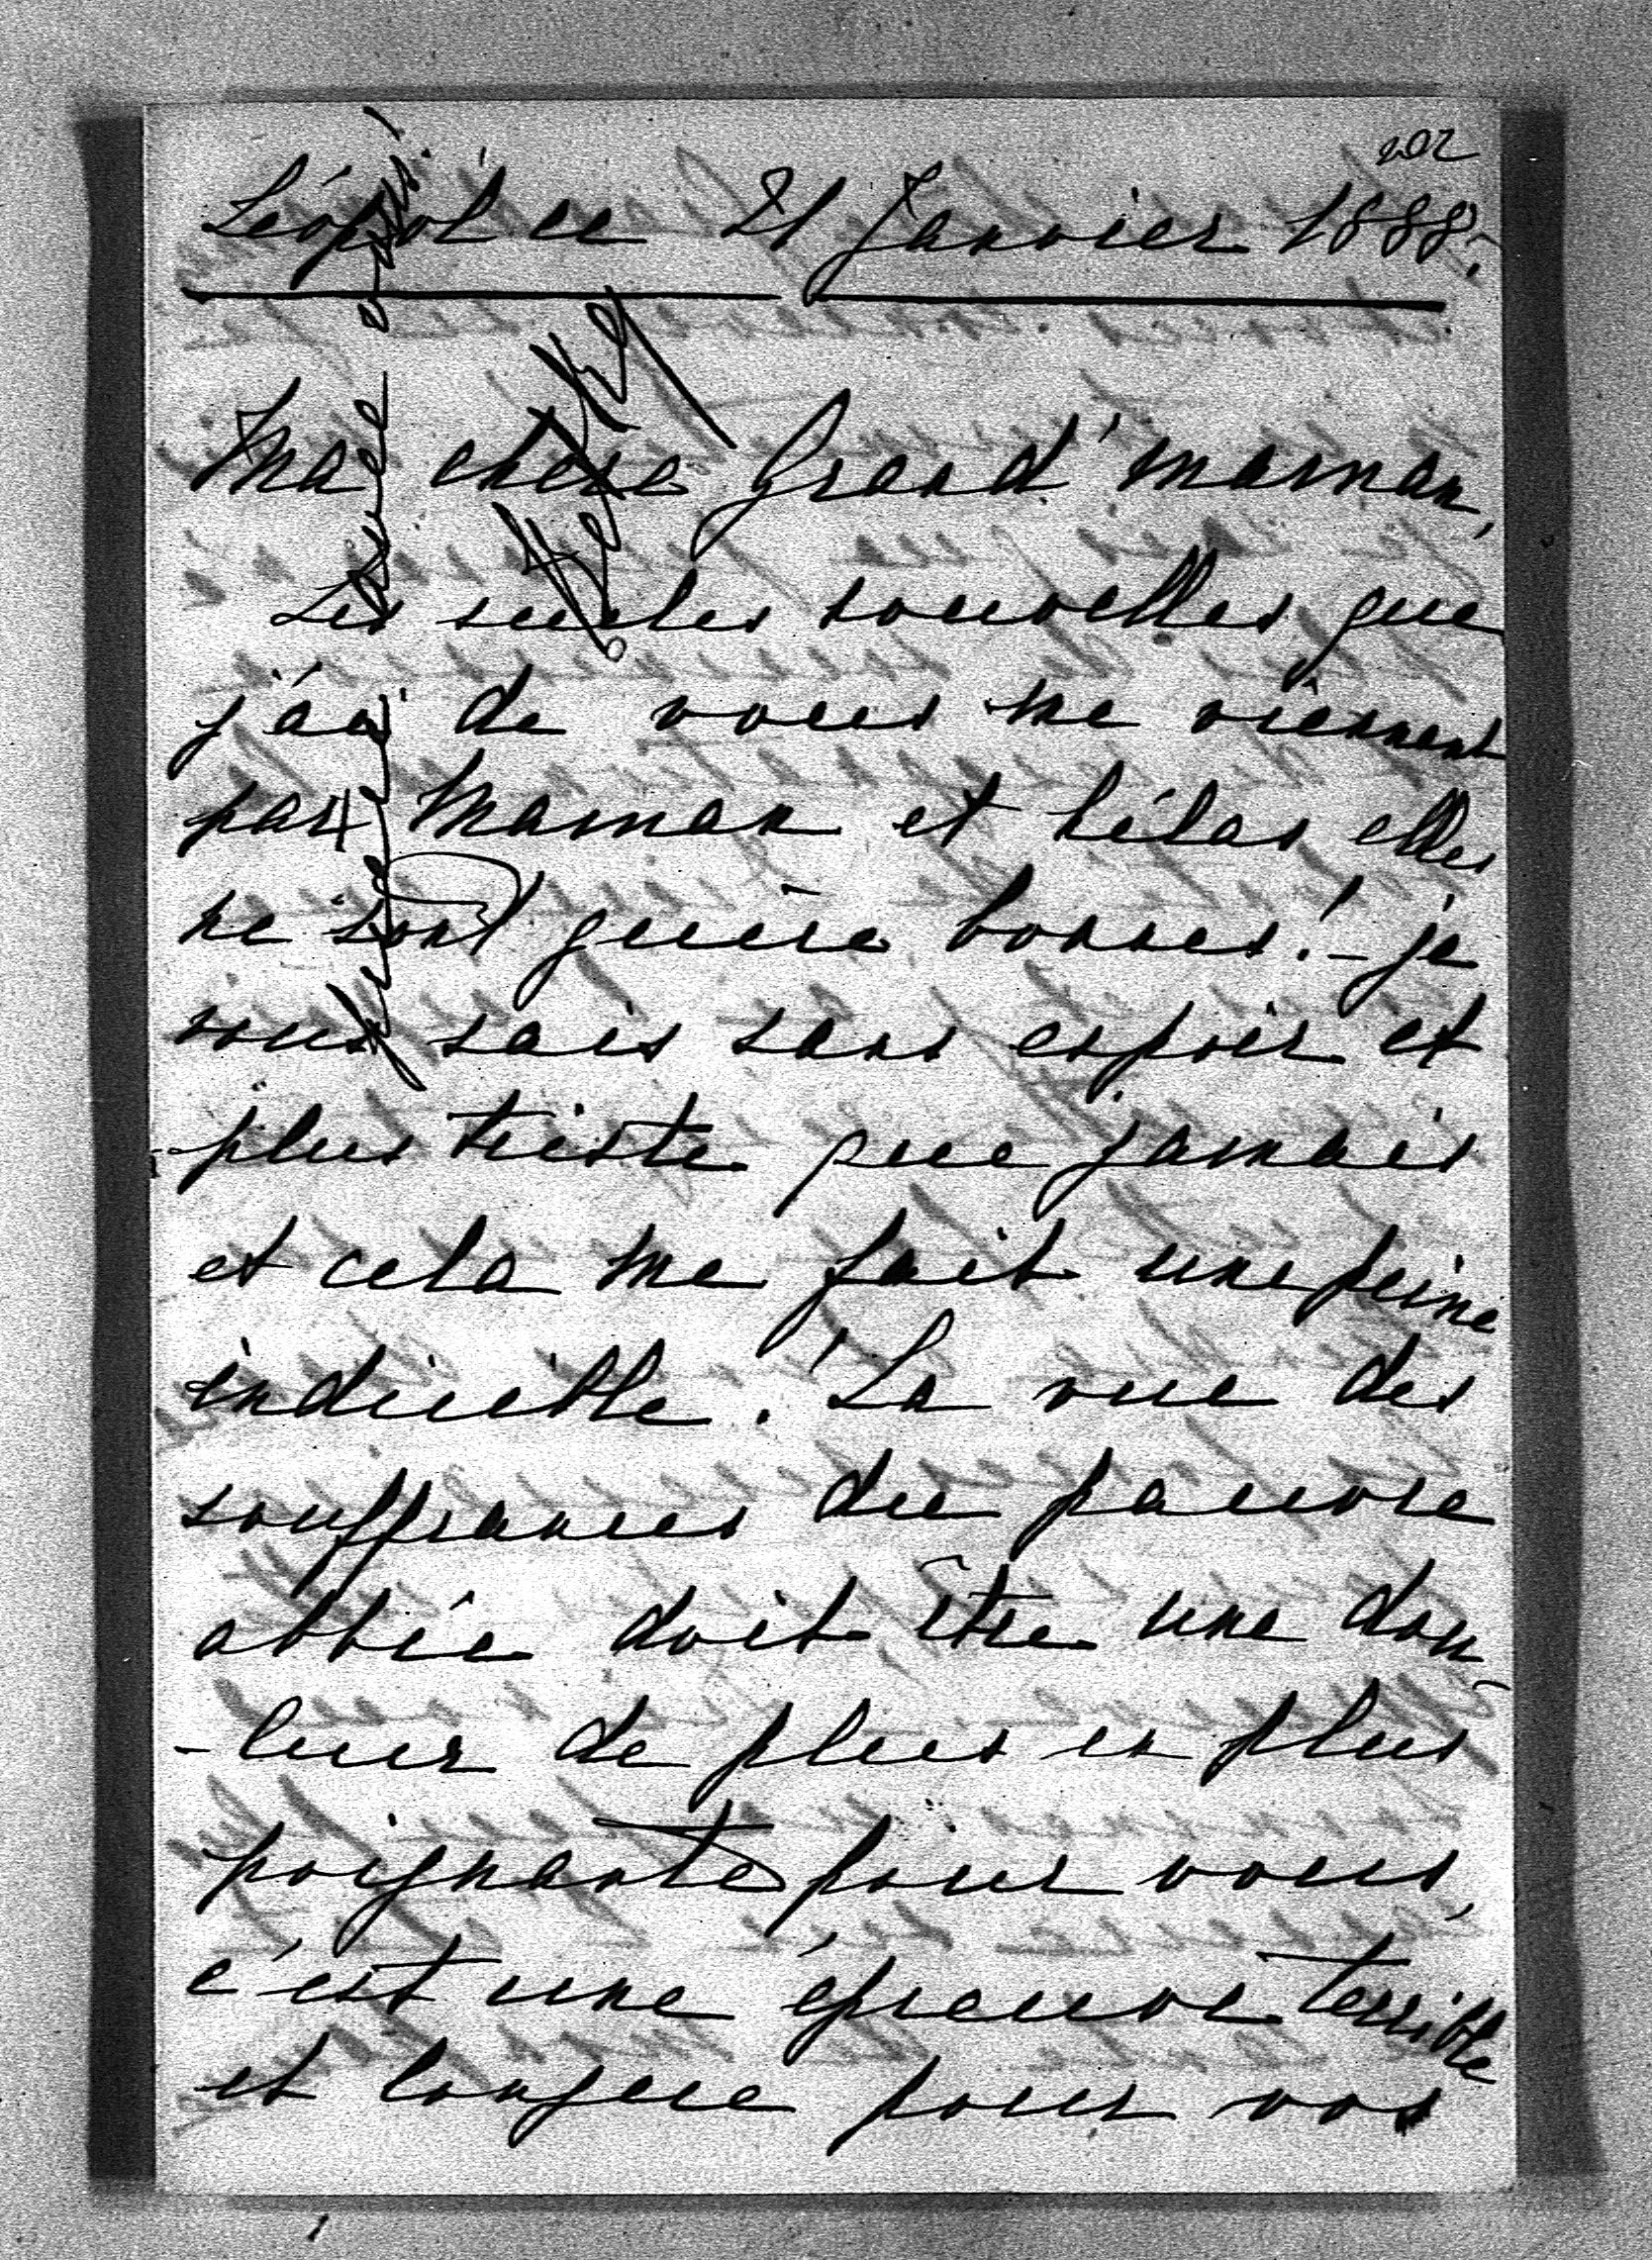 202
Léopol ce 21 Janvier 1888.
Ma chère Grand'maman,
Les seules nouvelles que
j'ai de vous me viennent
par Maman et hélas elles
ne sont guère bonnes! - je
vous sais sans espoir et
plus triste que jamais
et cela me fait une peine
indicible. La vue des
souffrances du pauvre
abbée doit être une dou-
-leur de plus en plus
poignante pour vous,
c'est une épreuve terrible
et longue pour vos